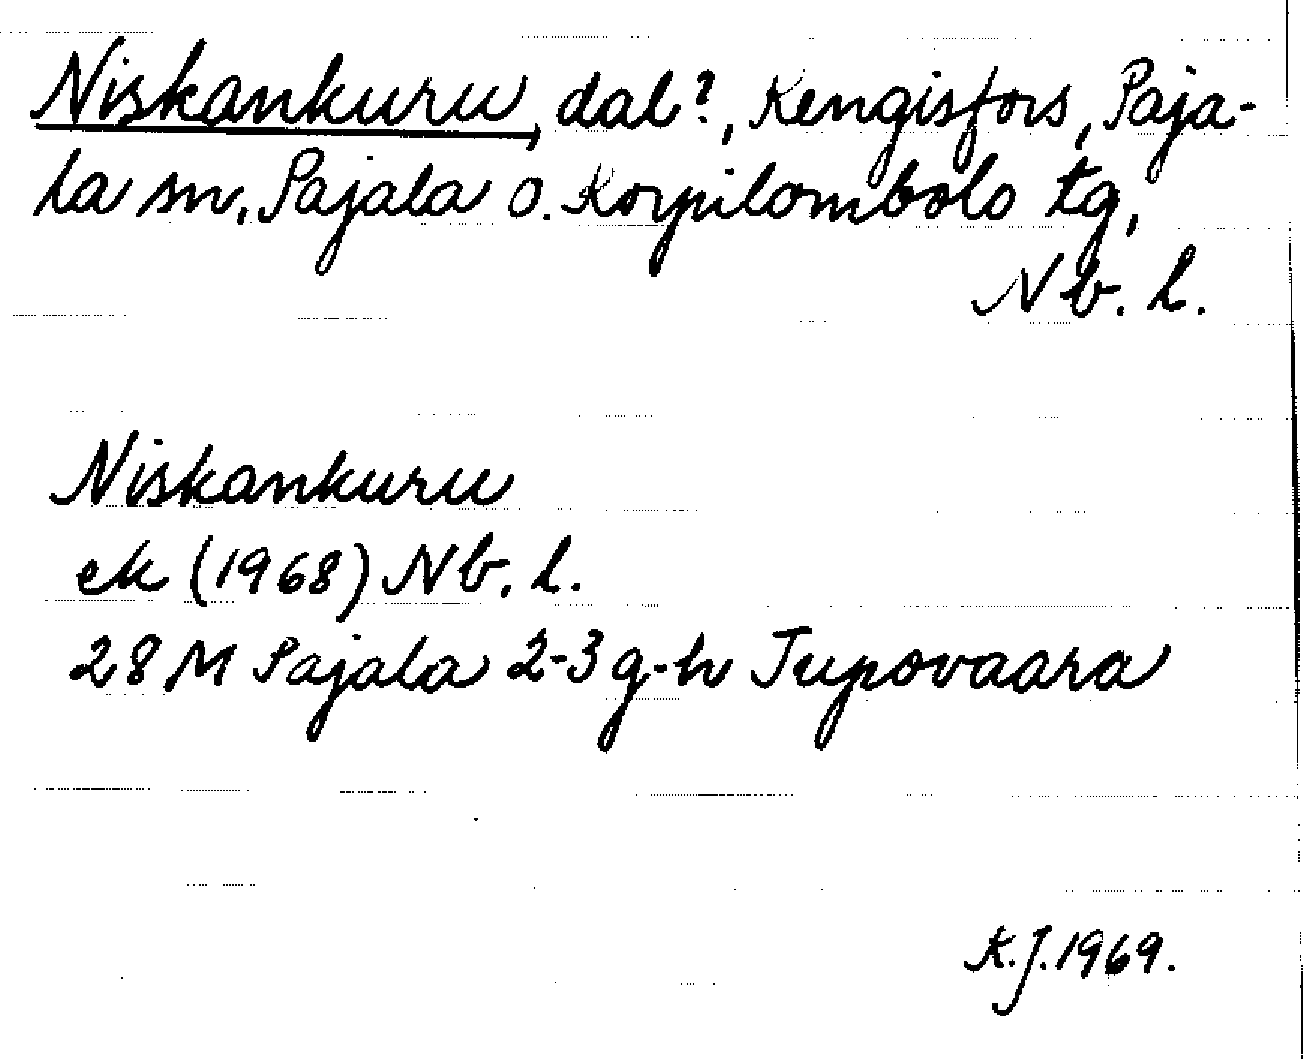 Niskankuru, dal?, Kengisfors, Paja-
la sn, Pajala o. Korpilombolo tg,
Nb. l.
Niskankuru
ek (1968) Nb. l.
28 M Pajala 2-3 g-h Tupovaara
K.J. 1969.